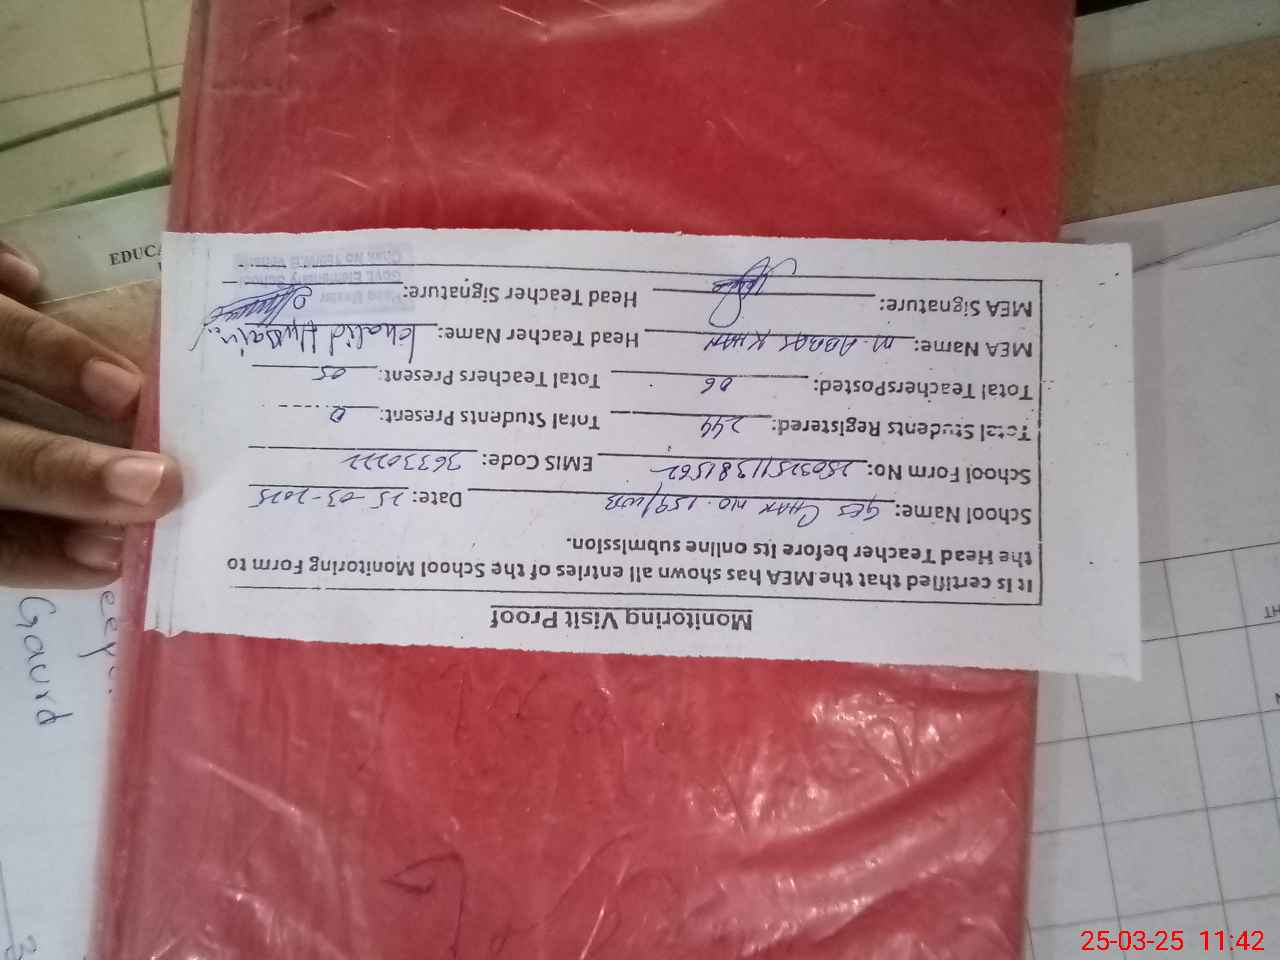 Monitoring Visit Proof
It is certified that the MEA has shown all entries of the School Monitoring Form to
the Head Teacher before its online submission.
School Name: GES CHAK NO. 159/WB Date: 25-03-2025
School Form No: EMIS Code: 36330222
Total Students Registered: 244 Total Students Present: 0
Total TeachersPosted: 06 Total Teachers Present: 05
MEA Name: M. ABBAS KHAN Head Teacher Name: Khalid Hussain
MEA Signature: Head Teacher Signature:
Head Master
Govt. Elementary School
Chak No
EDUCA
Gaurd
25-03-25 11:42